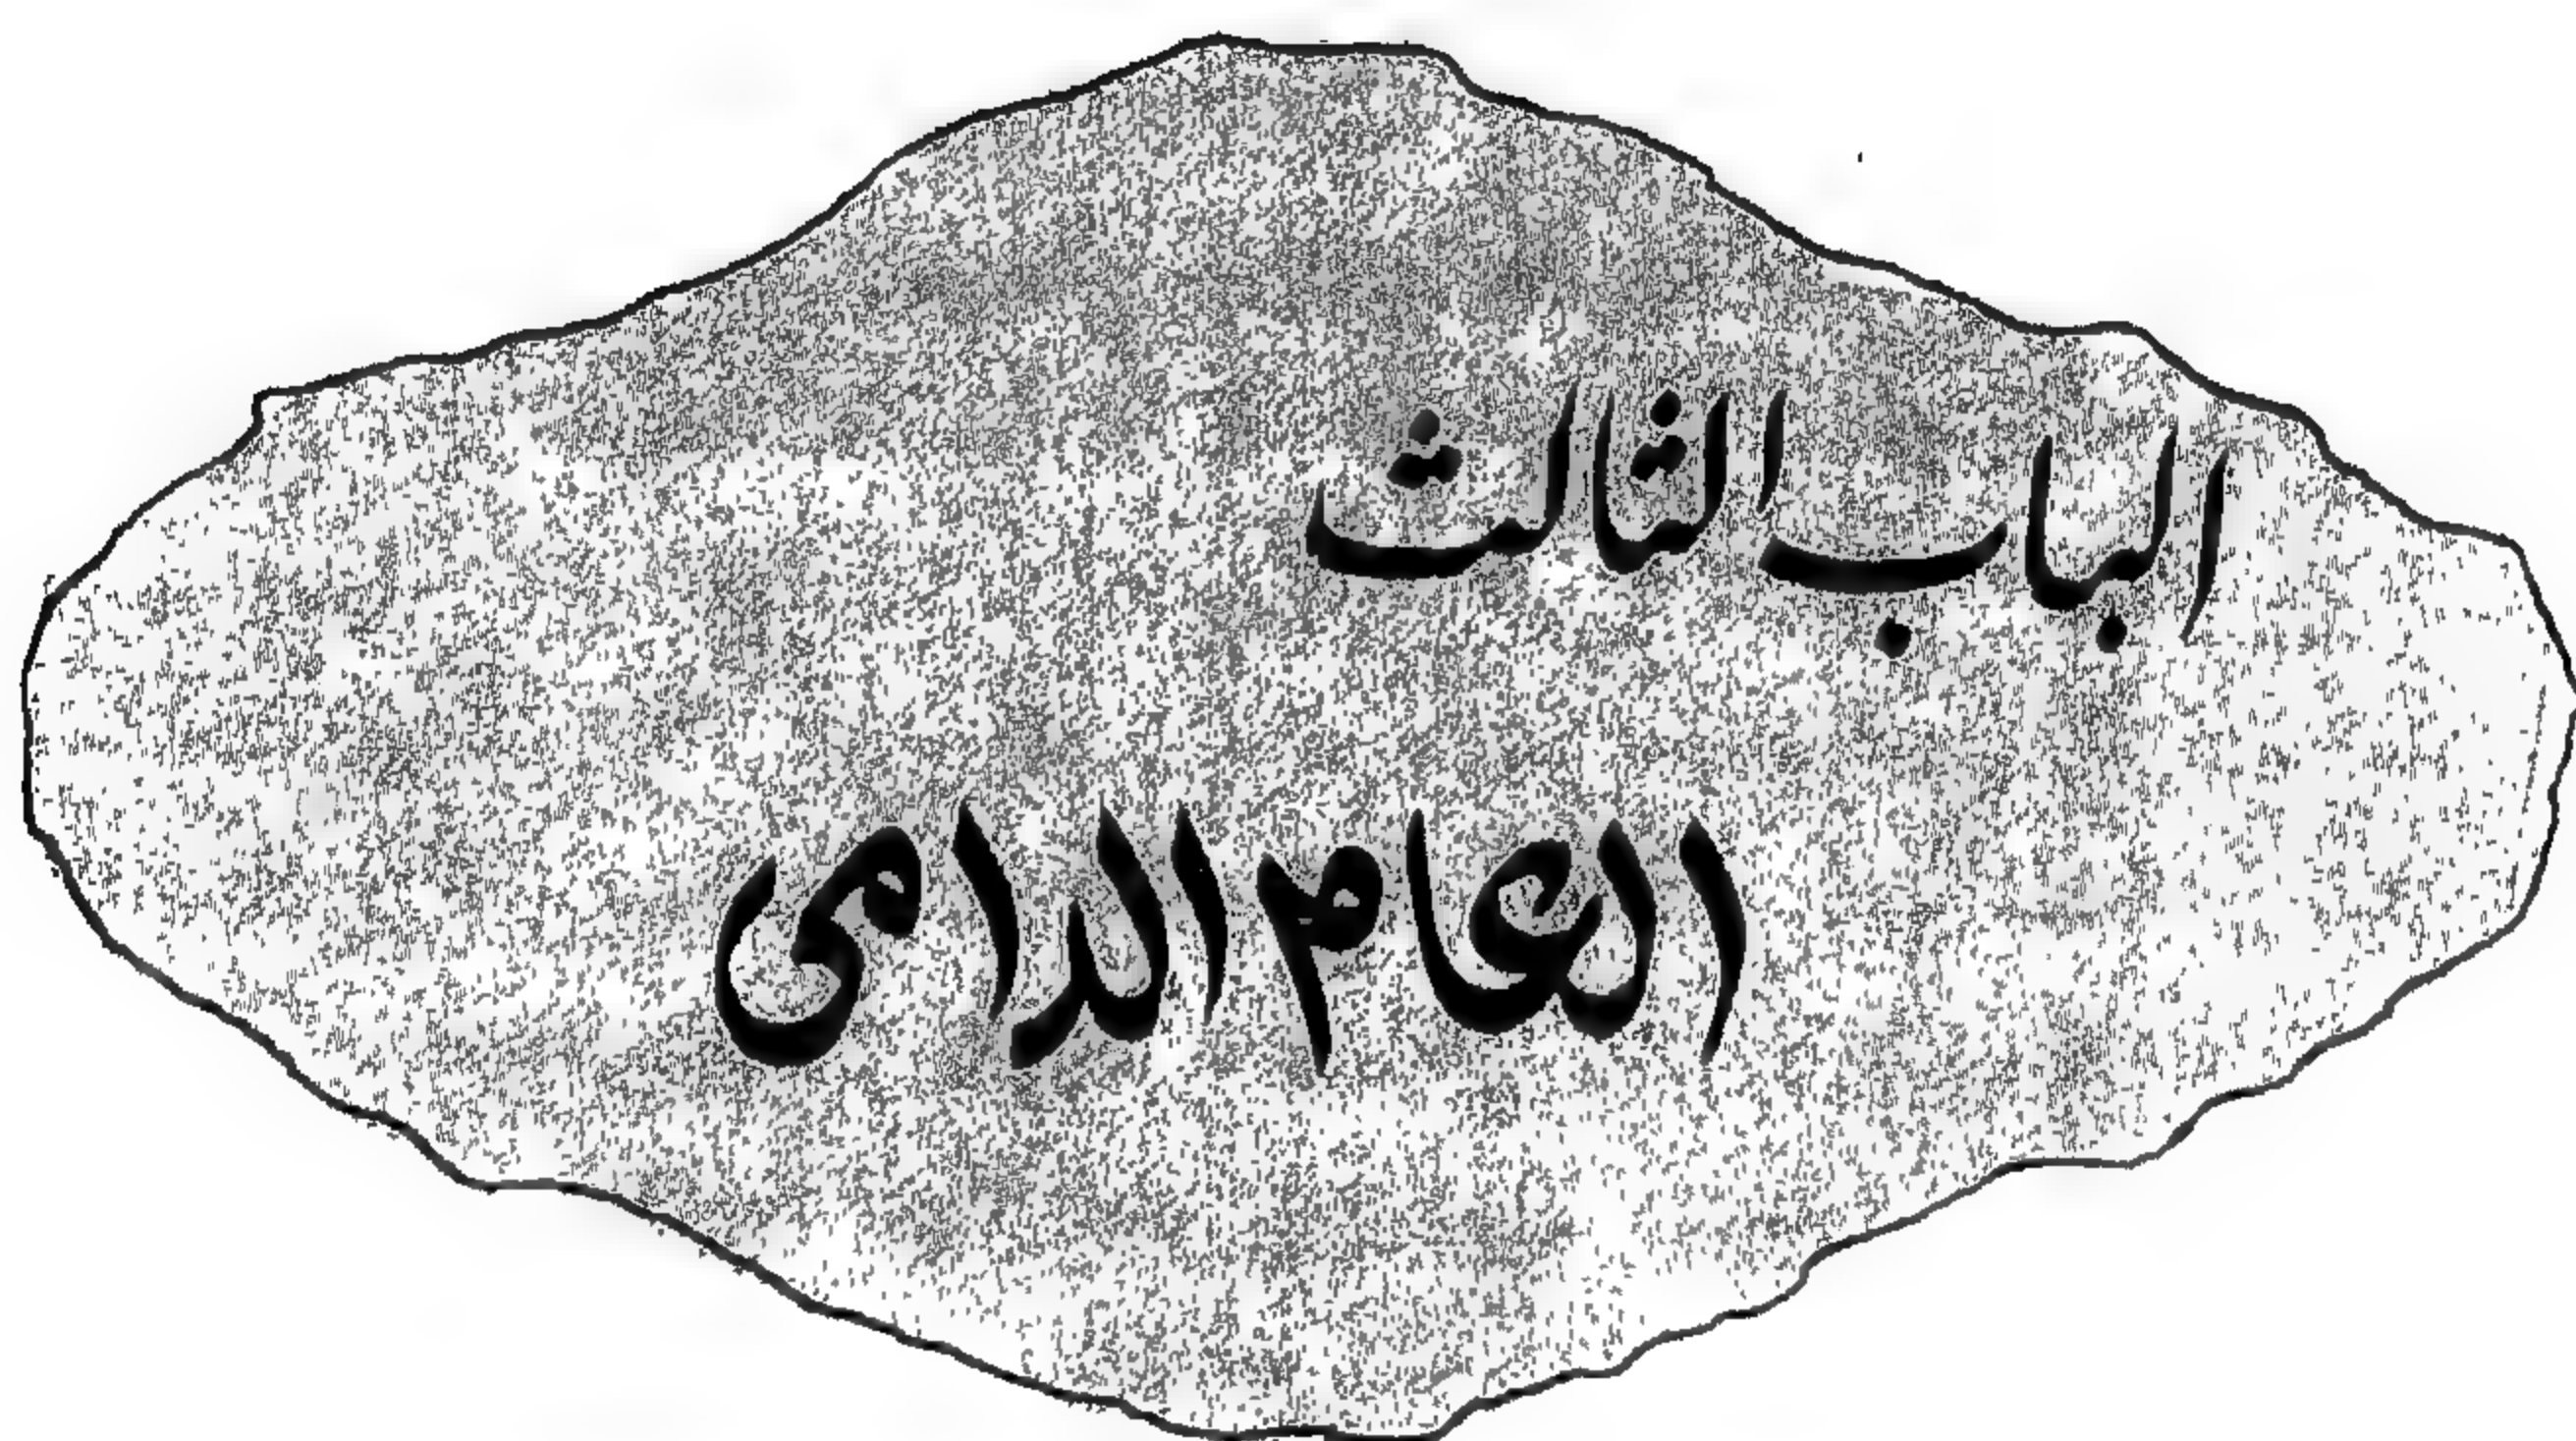 الباب الثالث
العام الدامى